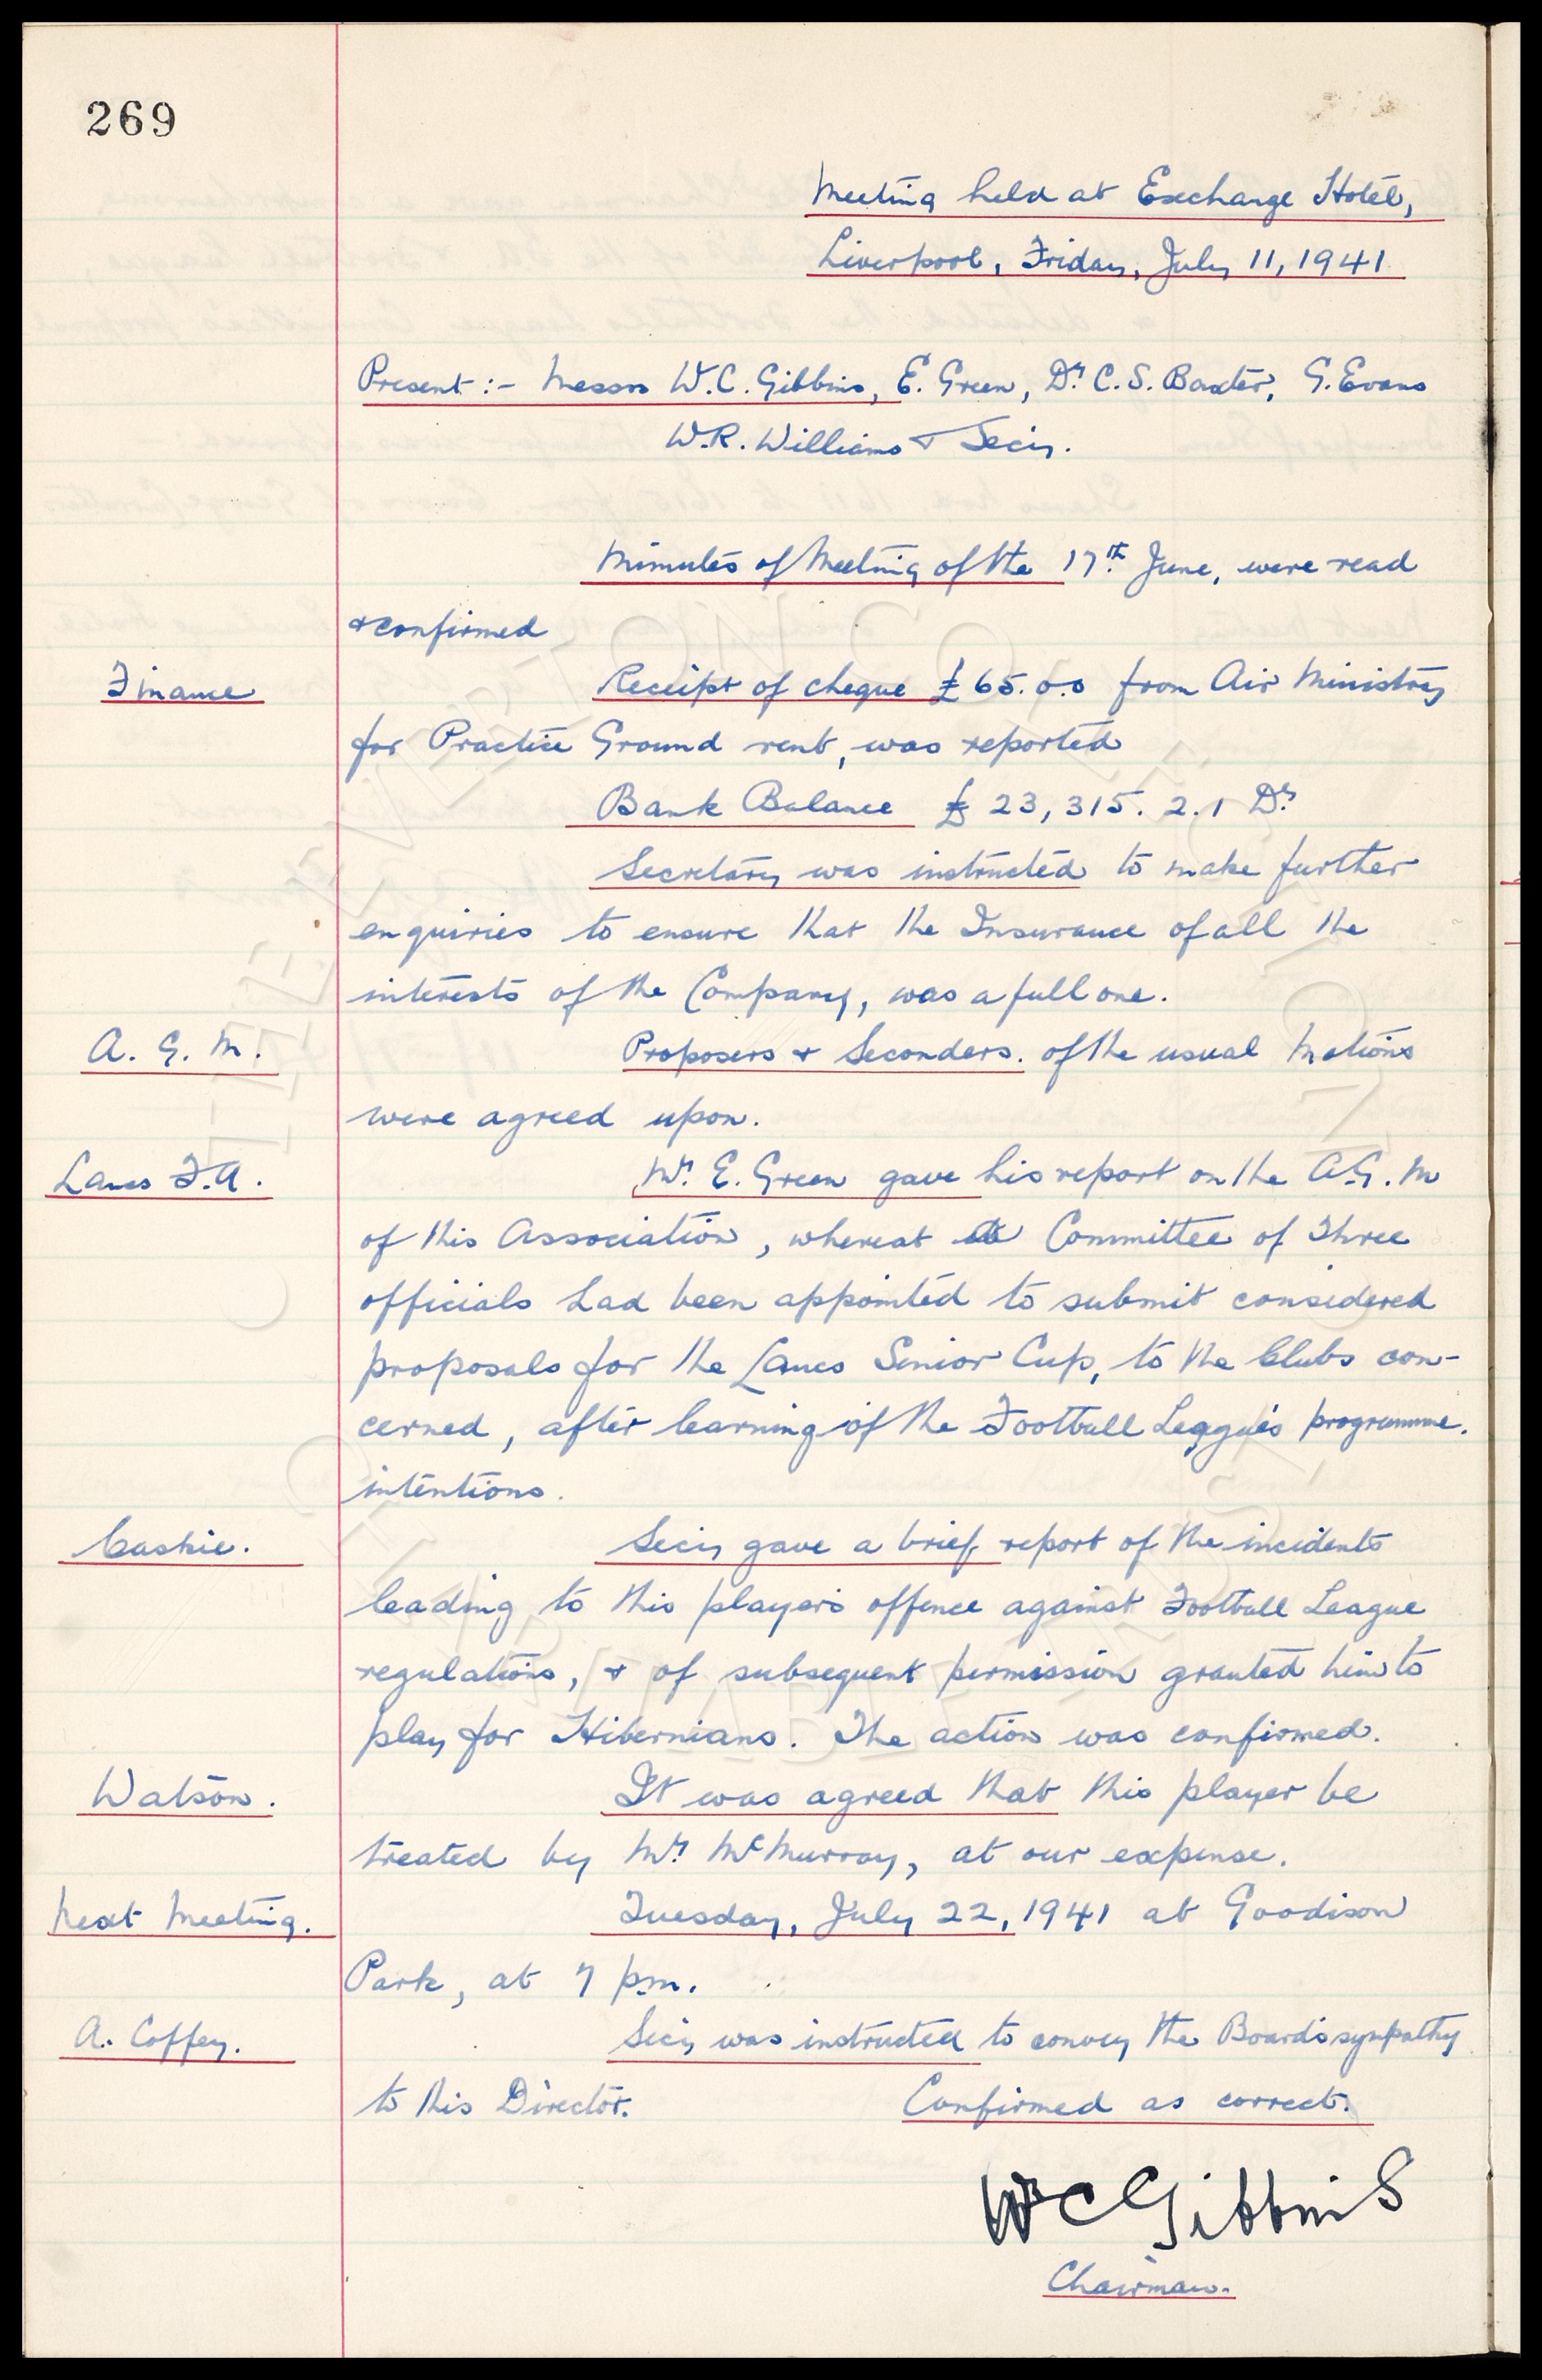 269
Meeting held at Exchange Hotel,
Liverpool, Friday, July 11, 1941
Present :- Messrs W.C. Gibbins, E. Green, Dr. C.S. Baxter, G. Evans
W.R. Williams & Secy.
Minutes of Meeting of the 17th June, were read
& confirmed
Finance
Receipt of cheque £65.0.0 from Air Ministry
for Practice Ground rent, was reported
Bank Balance £ 23,315. 2. 1 Dr.
Secretary was instructed to make further
enquiries to ensure that the Insurance of all the
interests of the Company, was a full one.
A. G. M.
Proposers & Seconders. of the usual Motions
were agreed upon.
Lancs F.A.
Mr. E. Green gave his report on the A.G.M
of this Association, whereat a Committee of Three
officials had been appointed to submit considered
proposals for the Lancs Senior Cup, to the Clubs con-
cerned, after learning of the Football League's programme.
intentions.
Caskie.
Secy gave a brief report of the incidents
leading to this player's offence against Football League
regulations, & of subsequent permission granted him to
play for Hibernians. The action was confirmed.
Watson.
It was agreed that this player be
treated by Mr. McMurray, at our expense.
Next Meeting.
Tuesday, July 22, 1941 at Goodison
Park, at 7 p.m.
A. Coffey.
Secy was instructed to convey the Board's sympathy
to this Director.
Confirmed as correct.
W C Gibbins
Chairman.